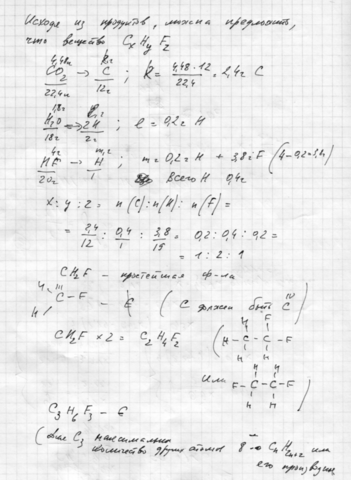 Исходя из продуктов, можно предложить,
что вещество CxHyFz
4,48л k г
CO2 → C ; k = 4,48·12 / 22,4 = 2,4г C
22,4л 12г
1,8г l г
H2O → 2H ; l = 0,2г H
18г 2г
4г m, г
HF → H ; m = 0,2г H + 3,8г F (4-0,2=3,8)
20г 1 всего H 0,4г
x : y : z = n(C) : n(H) : n(F) =
= 2,4/12 : 0,4/1 : 3,8/19 = 0,2 : 0,4 : 0,2 =
= 1 : 2 : 1
CH2F - простейшая ф-ла
H III
C - F - (C должен быть C IV)
H
CH2F × 2 = C2H4F2
H F
(H - C - C - F
H H
или H H
F - C - C - F)
H H
C3H6F3 -
(для C3 максимально
количество других атомов 8 CnH2n+2 или
его производн